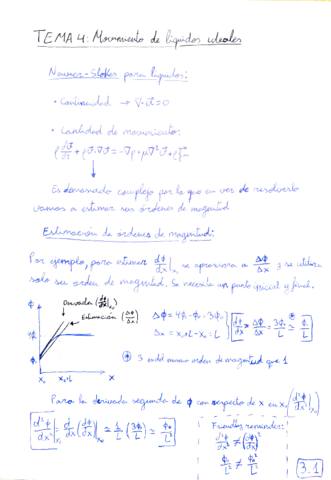 TEMA 4: Movimiento de líquidos ideales
Navier-Stokes para líquidos:
• Continuidad → ∇·v⃗=0
• Cantidad de movimiento:
ρ ∂v⃗/∂t + ρv⃗·∇v⃗ = -∇p + μ∇²v⃗ + ρf⃗m
Es demasiado complejo por lo que en vez de resolverlo
vamos a estimar sus órdenes de magnitud
Estimación de órdenes de magnitud:
Por ejemplo, para estimar dϕ/dx|x₀ se aproxima a Δϕ/Δx y se utiliza
solo su orden de magnitud. Se necesita un punto inicial y final.
ϕ
Derivada (dϕ/dx)
Estimación (Δϕ/Δx)
4ϕ₀
ϕ₀
x₀ x₀+L x
Δϕ = 4ϕ₀ - ϕ₀ = 3ϕ₀
Δx = x₀+L-x₀ = L
dϕ/dx ≈ Δϕ/Δx = 3ϕ₀/L ≈ ϕ₀/L
⊛ 3 es del mismo orden de magnitud que 1
Para la derivada segunda de ϕ con respecto de x en x₀ (d²ϕ/dx²|x₀)
d²ϕ/dx²|x₀ = d/dx (dϕ/dx)|x₀ ≈ 1/L (3ϕ₀/L) ≈ ϕ₀/L²
Friendly reminder:
d²ϕ/dx² ≠ (dϕ/dx)²
ϕ₀/L² ≠ ϕ₀²/L²
3.1